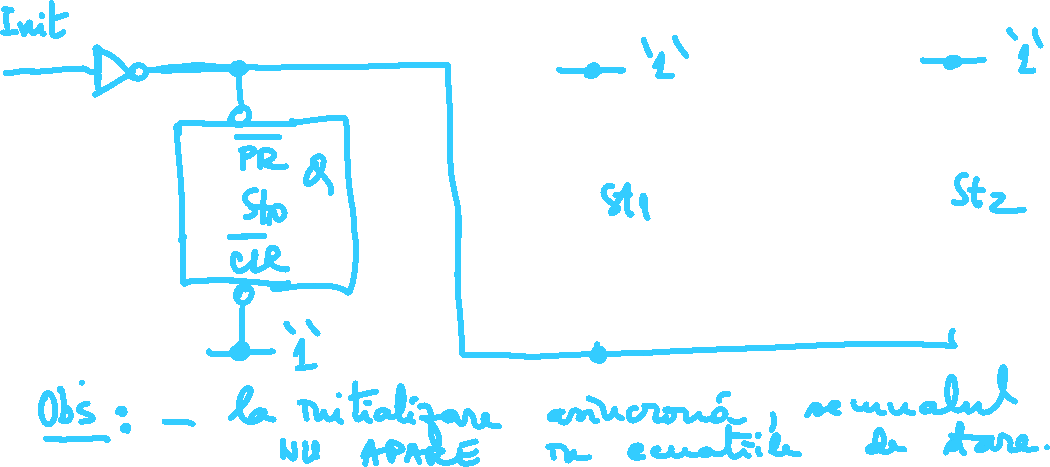 Init
'1' '1'
PR Q
St0 St1 St2
CLR
'1'
Obs: - la initializare asincronă, semnalul
NU APARE în ecuațiile de stare.